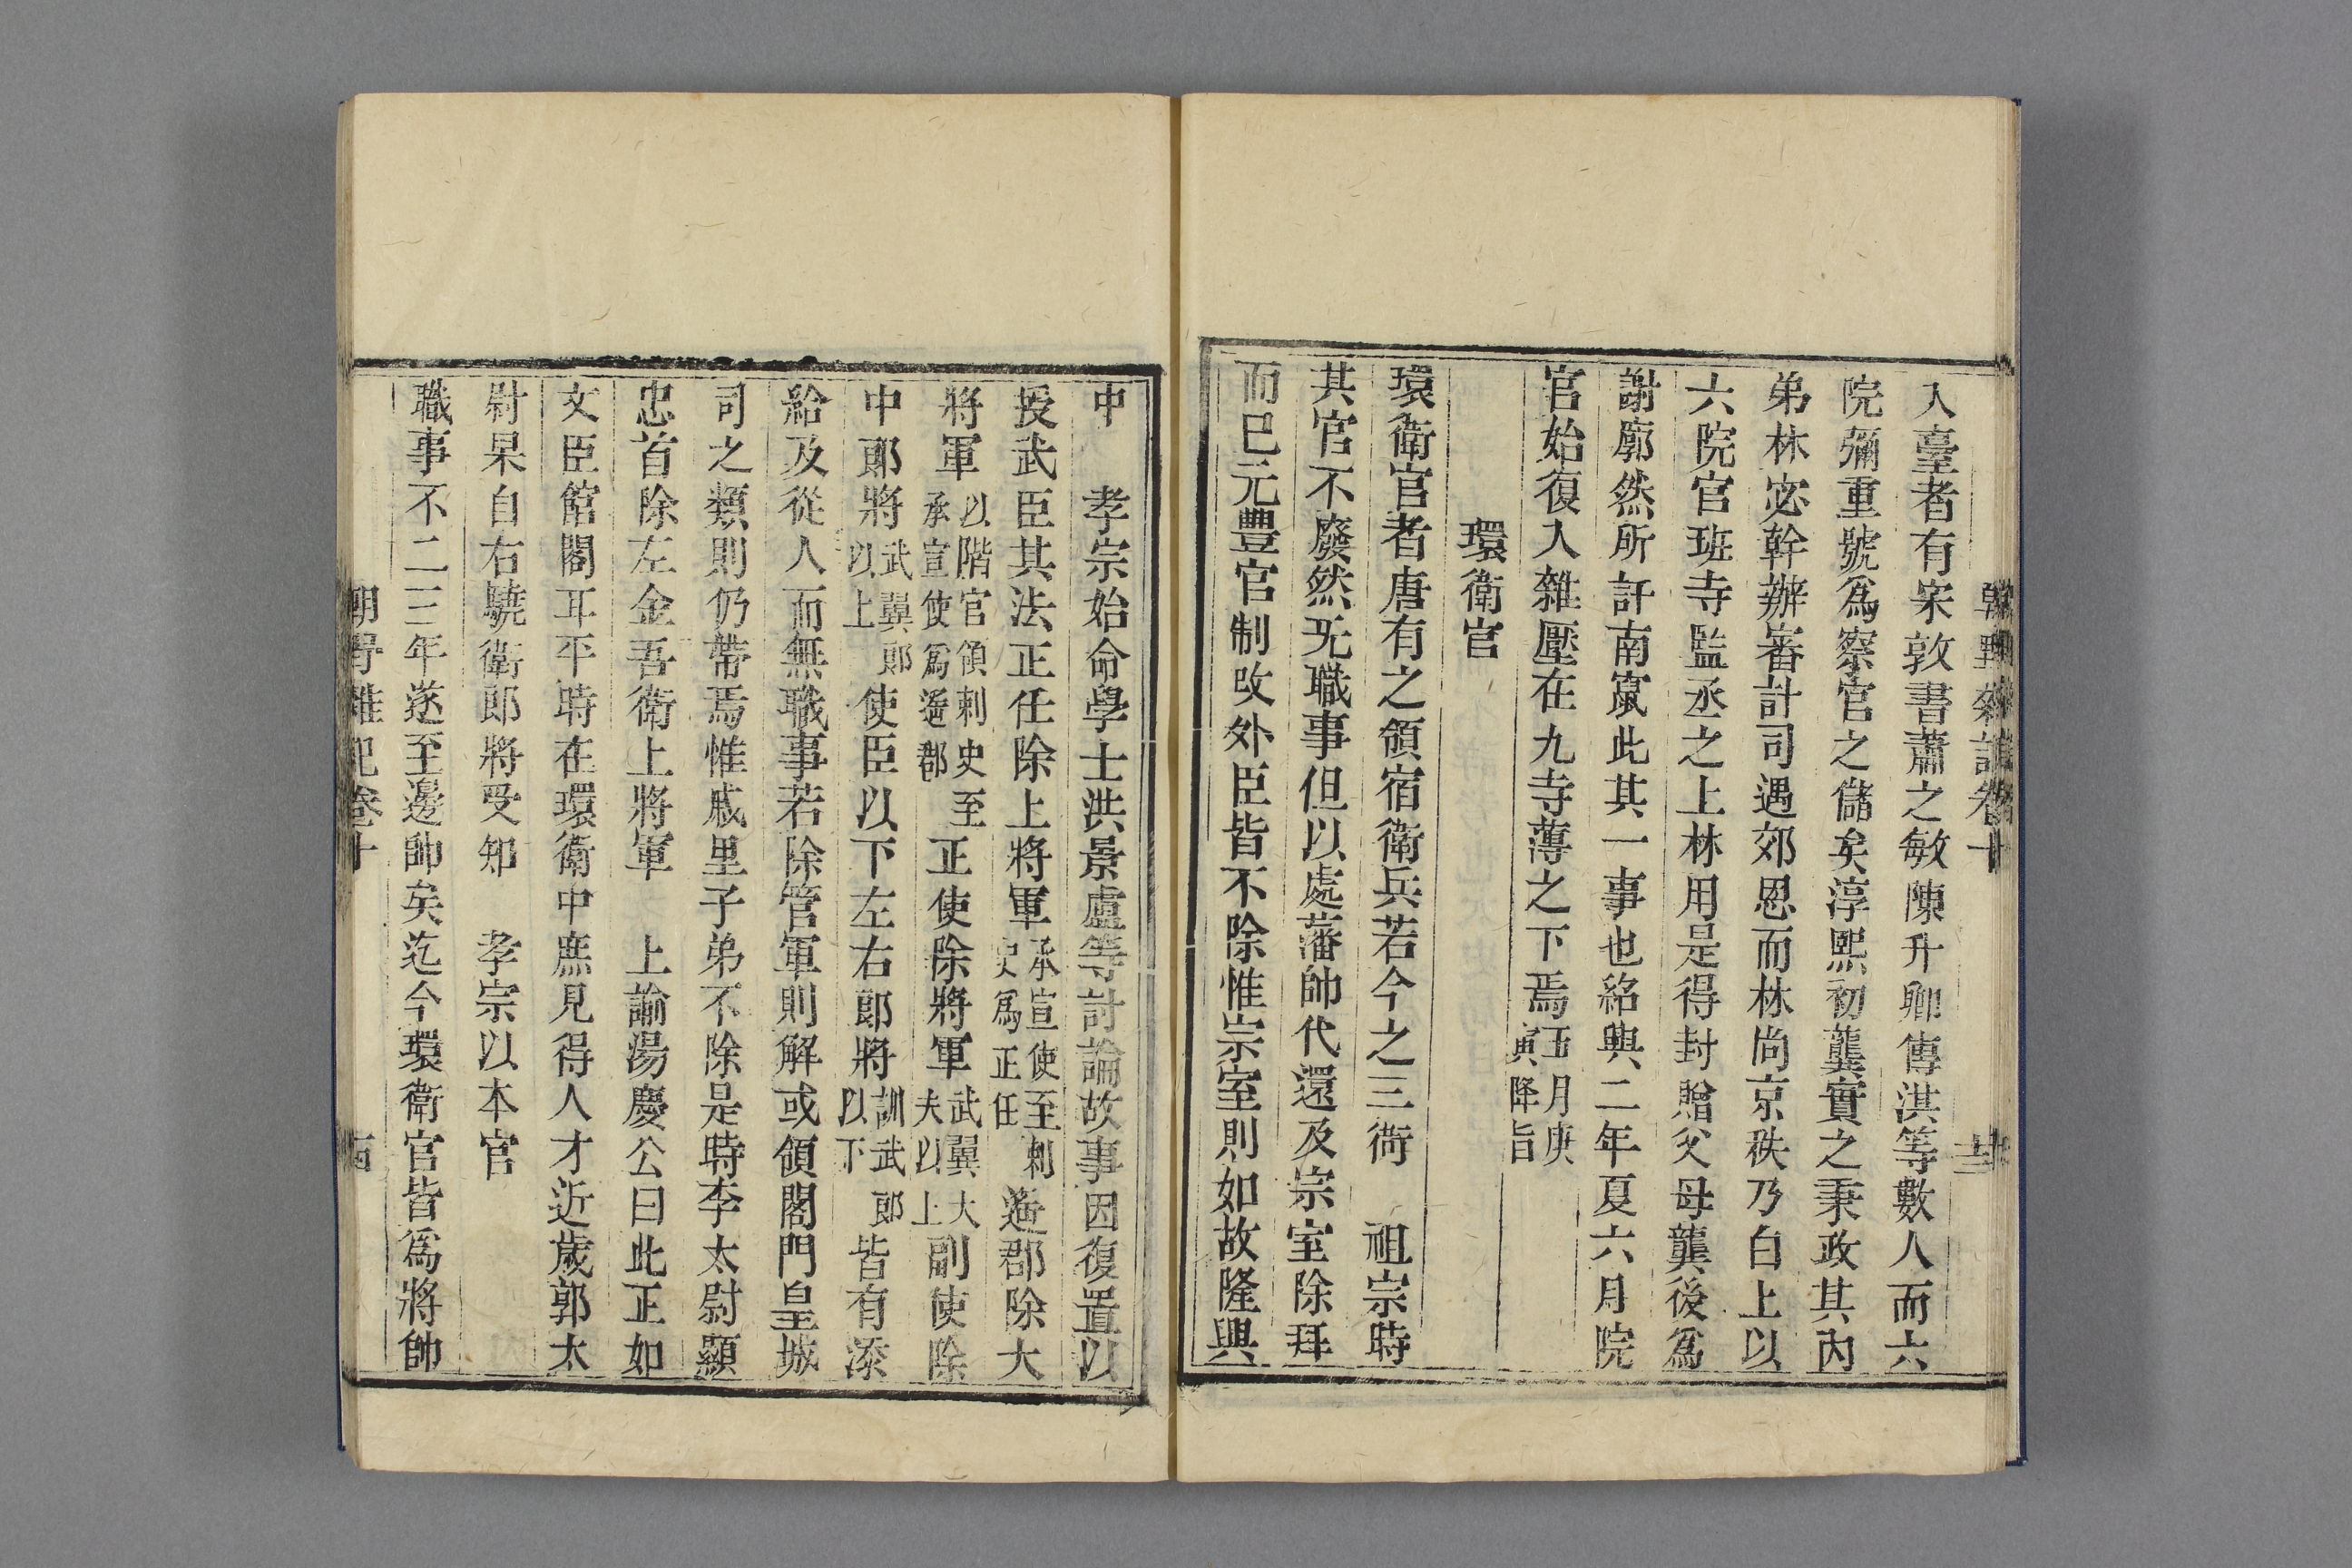 朝野雜記卷十 十三
入臺者有宋敦書蕭之敏陳升卿傅淇等數人而六
院彌重號爲察官之儲矣淳熙初龔實之秉政其內
弟林宓幹辦審計司遇郊恩而林尙京秩乃白上以
六院官班寺監丞之上林用是得封贈父母龔後爲
謝廓然所訐南竄此其一事也紹興二年夏六月院
官始復入雜壓在九寺薄之下焉五月庚寅降旨
環衛官
環衛官者唐有之領宿衛兵若今之三衙 祖宗時
其官不廢然旡職事但以處藩帥代還及宗室除拜
而已元豐官制改外臣皆不除惟宗室則如故隆興
中 孝宗始命學士洪景盧等討論故事因復置以
授武臣其法正任除上將軍承宣使至刺史爲正任遙郡除大
將軍以階官領刺史至承宣使爲遙郡正使除將軍武翼大夫以上副使除
中郞將武翼郞以上使臣以下左右郞將訓武郞以下皆有添
給及從人而無職事若除管軍則解或領閤門皇城
司之類則仍帶焉惟戚里子弟不除是時李太尉顯
忠首除左金吾衛上將軍 上諭湯慶公曰此正如
文臣館閣耳平時在環衛中庶見得人才近歲郭太
尉杲自右驍衛郎將受知 孝宗以本官
職事不二三年遂至邊帥矣迄今環衛官皆爲將帥
朝野雜記卷十 十四